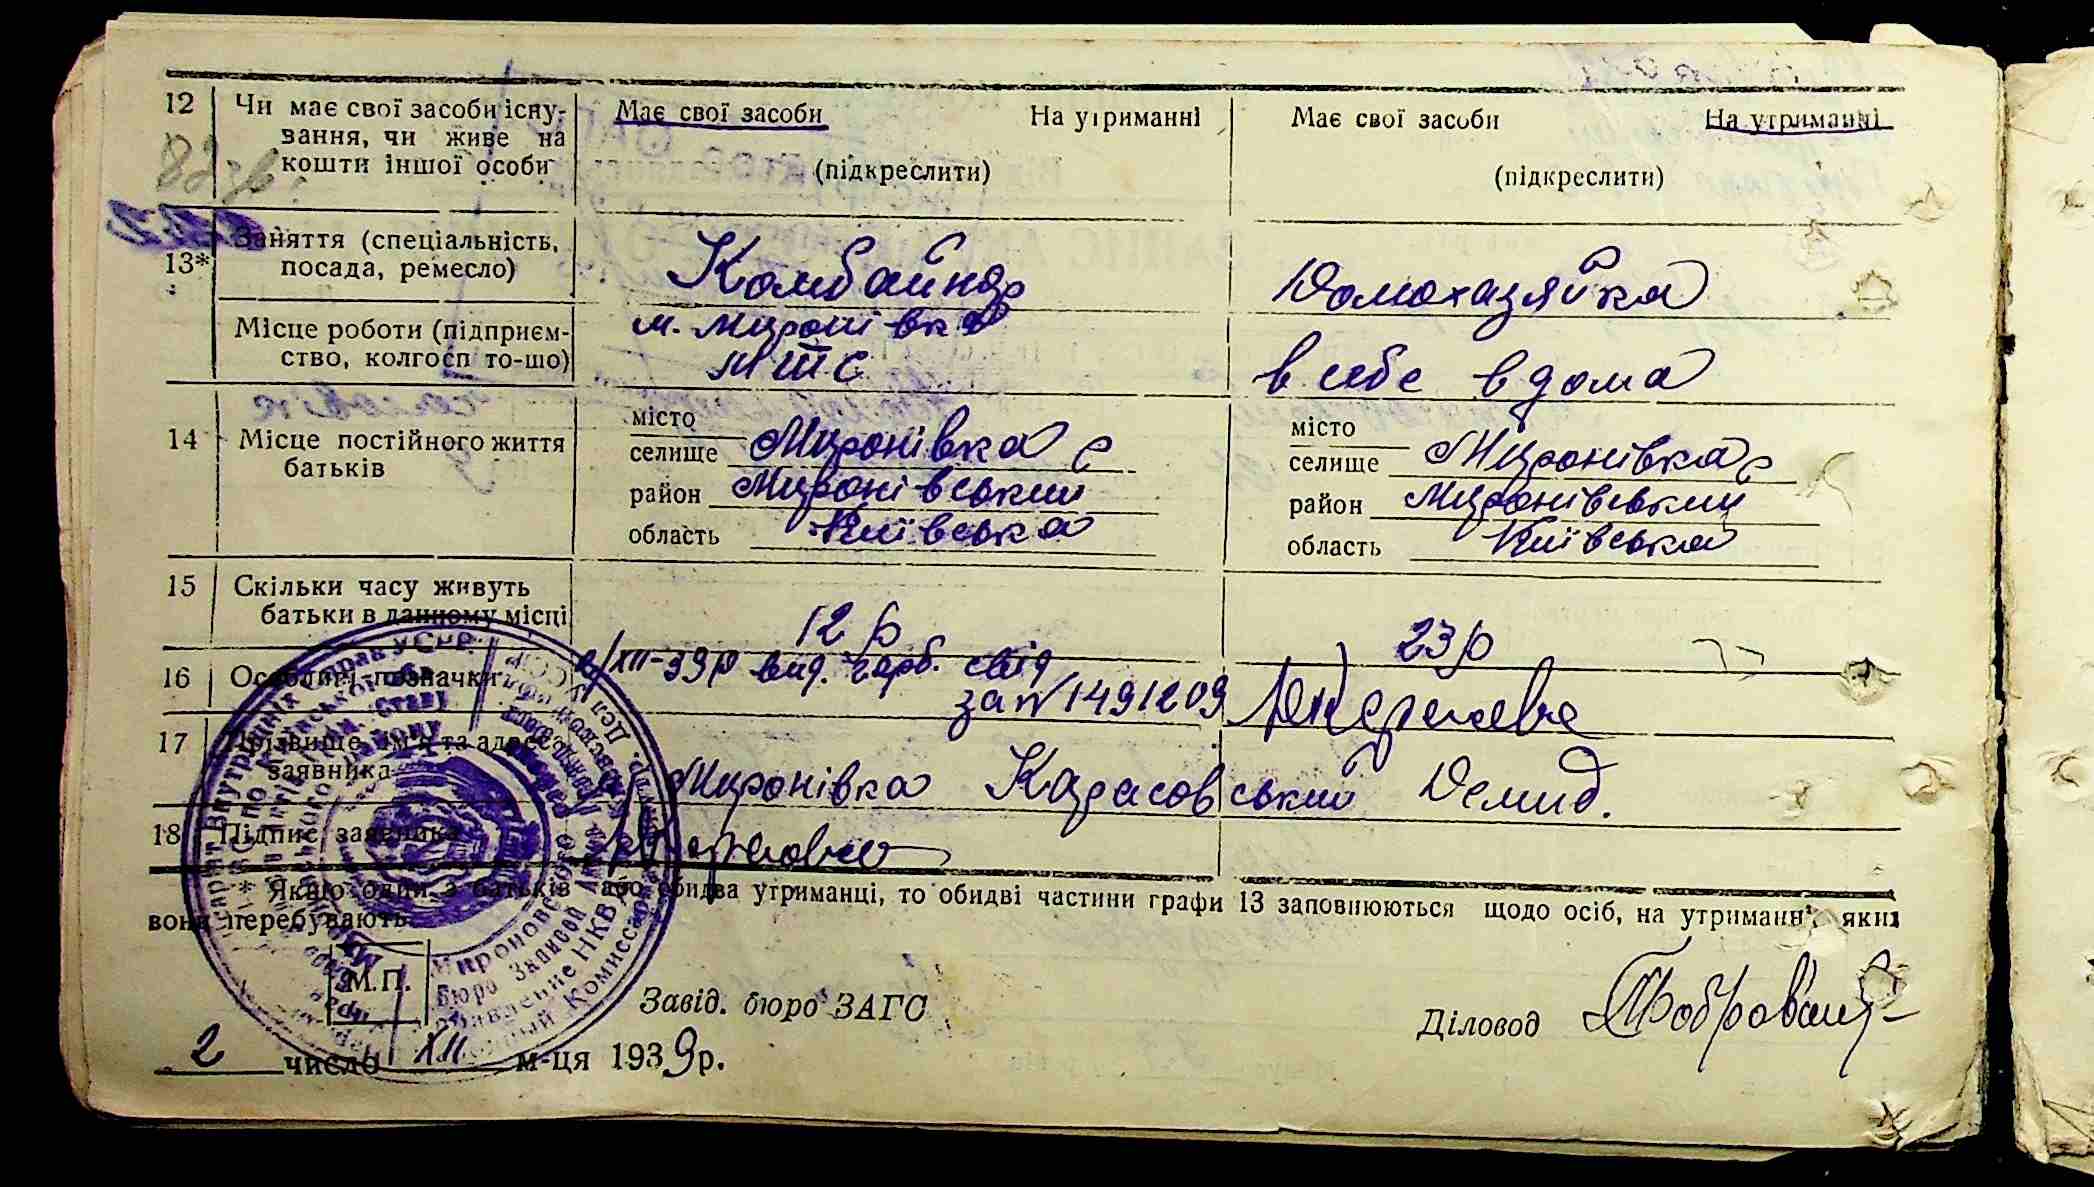 12 Чи має свої засоби існу- Має свої засоби На утриманні Має свої засоби На утриманні
вання, чи живе на
кошти іншої особи (підкреслити) (підкреслити)
Заняття (спеціальність,
13* посада, ремесло) Комбайнер Домохазяйка
Місце роботи (підприєм- м. Миронівка
ство, колгосп то-що) МТС в себе в дома
місто місто
14 Місце постійного життя селище Миронівка с селище Миронівка с
батьків район Миронівський район Миронівський
область Київська область Київська
15 Скільки часу живуть
батьки в данному місці 12 р 23 р
16 Особливі позначки 2/XII-39р вид. гарб. свід
за № 1491209
17 Прізвище, ім'я та адреса
заявника Миронівка Карасовський Демид.
18 Підпис заявника
* Якщо один з батьків або обидва утриманці, то обидві частини графи 13 заповнюються щодо осіб, на утриманні яких
вони перебувають.
М.П.
Завід. бюро ЗАГС
Діловод
2 число XII м-ця 1939р.